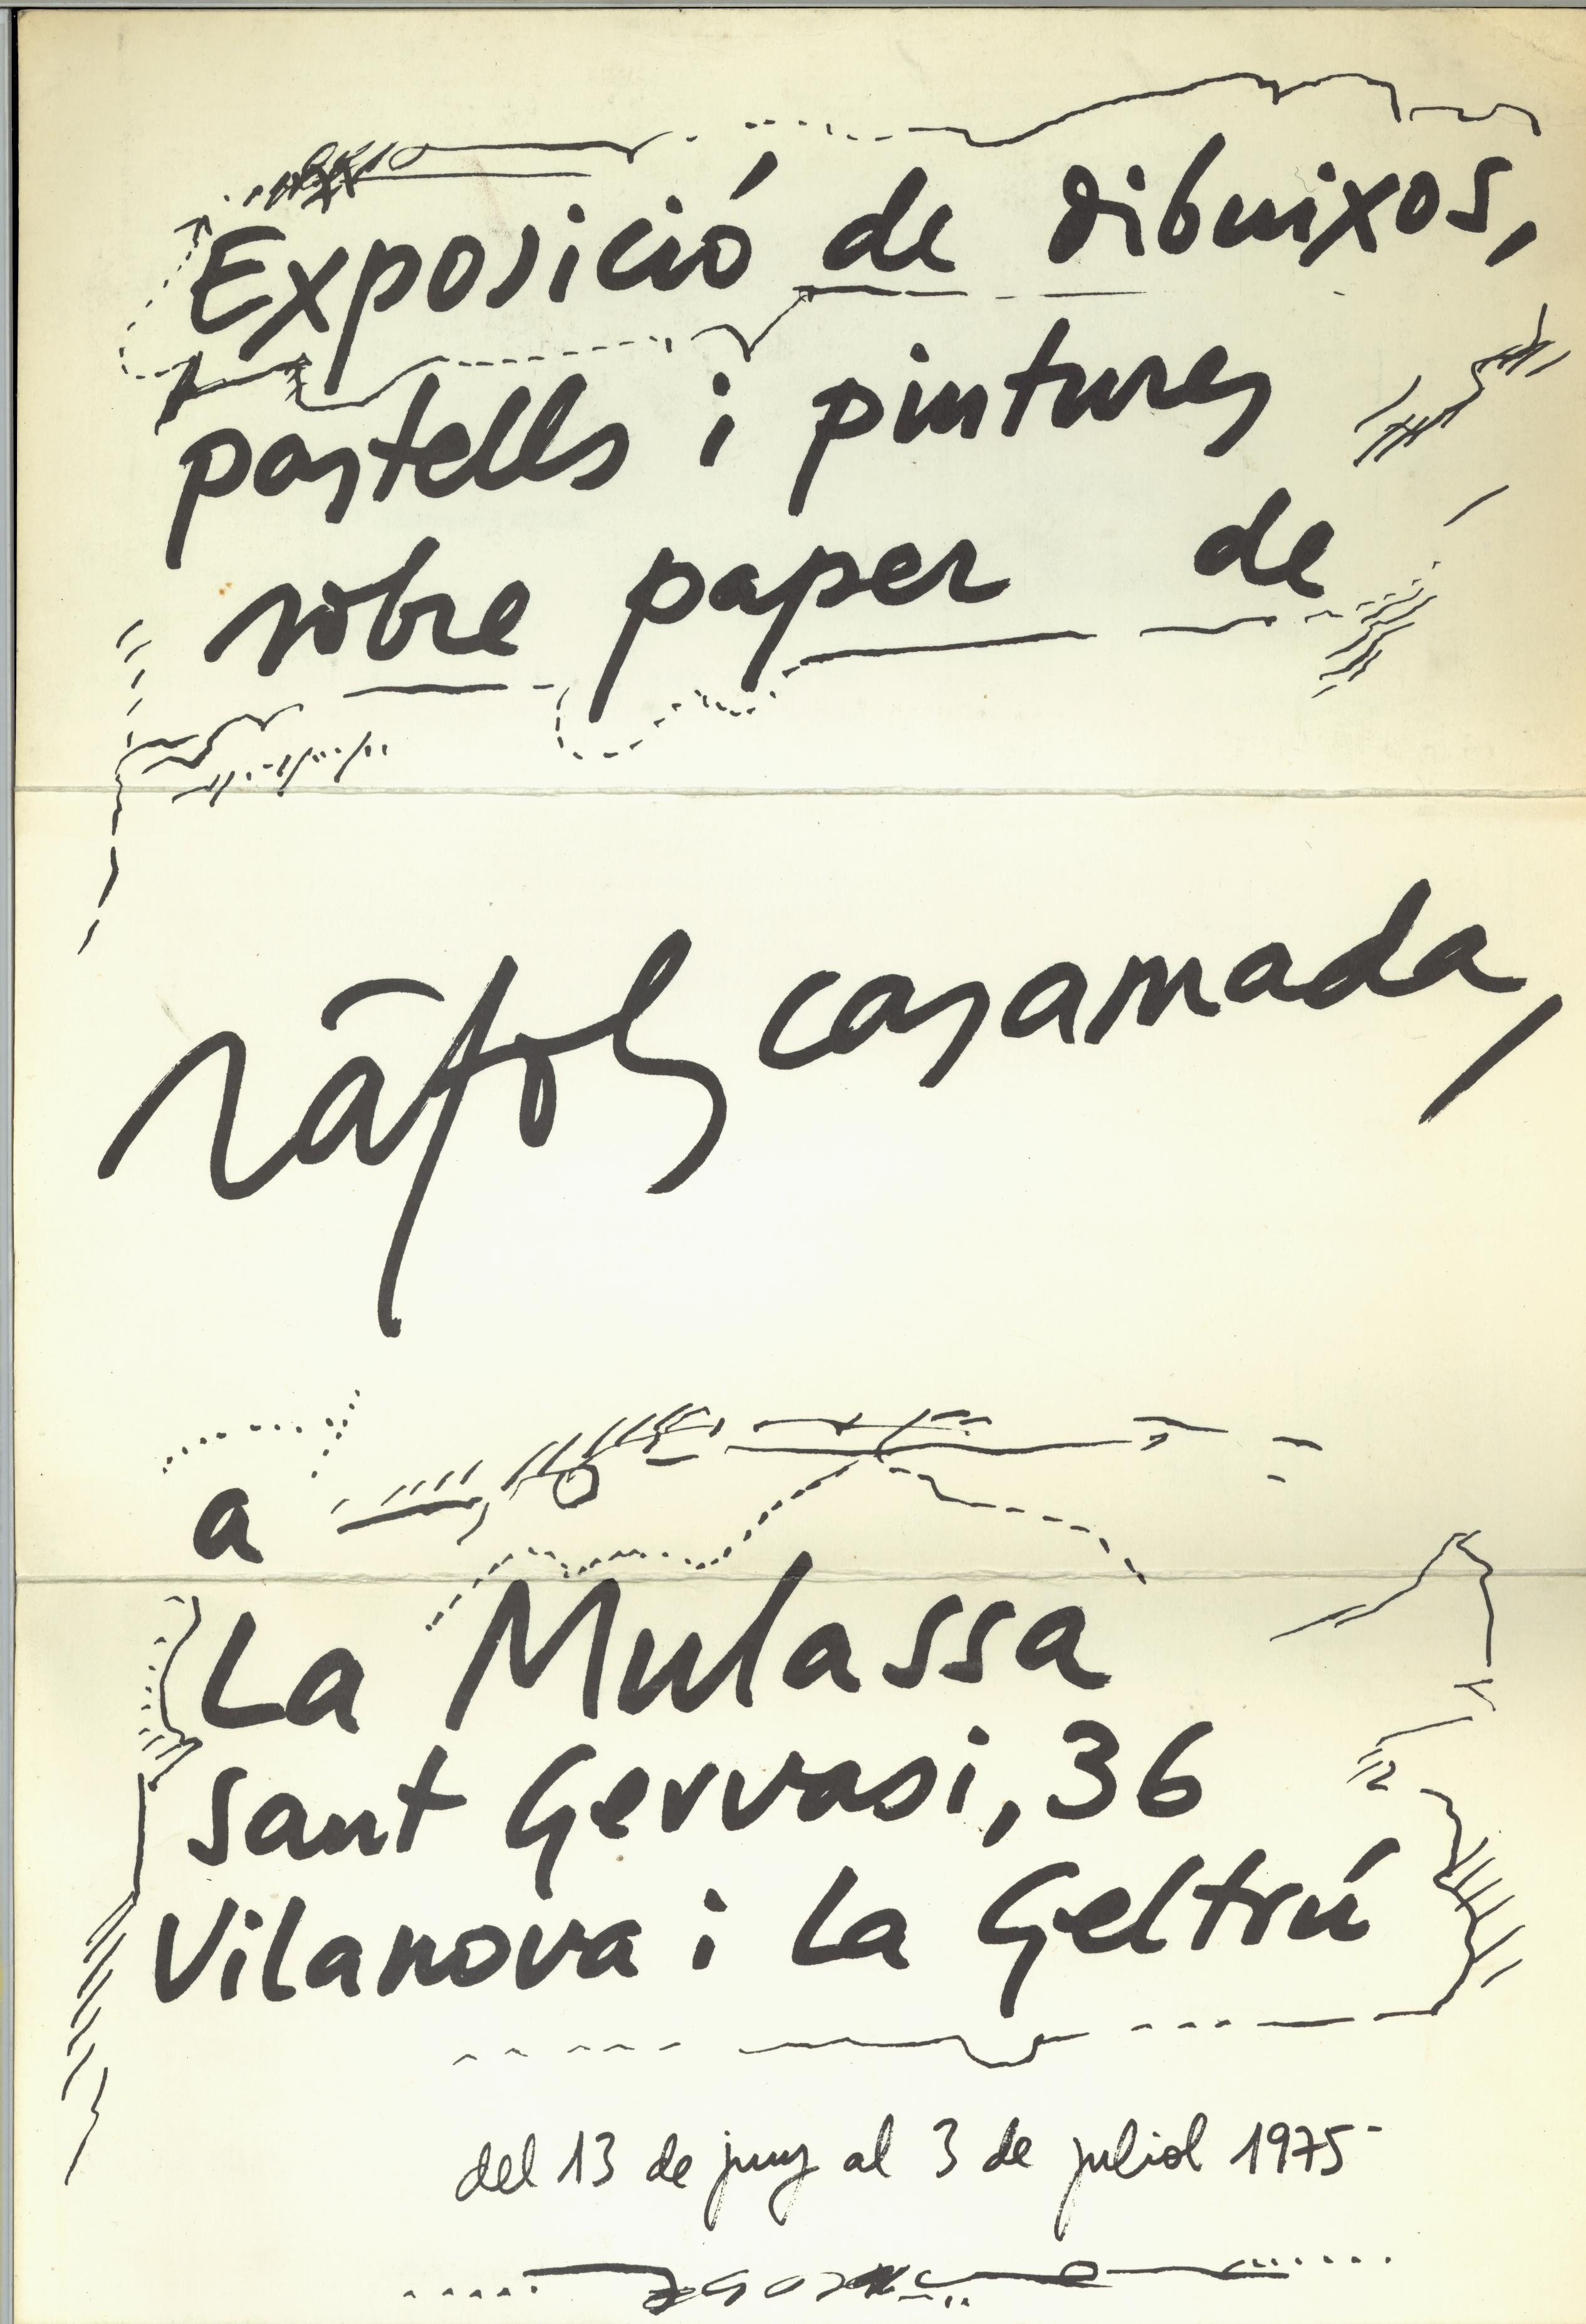 Exposició de dibuixos,
pastells i pintures
sobre paper de
ràfols casamada,
a
La Mulassa
Sant Gervasi, 36
Vilanova i la Geltrú
del 13 de juny al 3 de juliol 1975